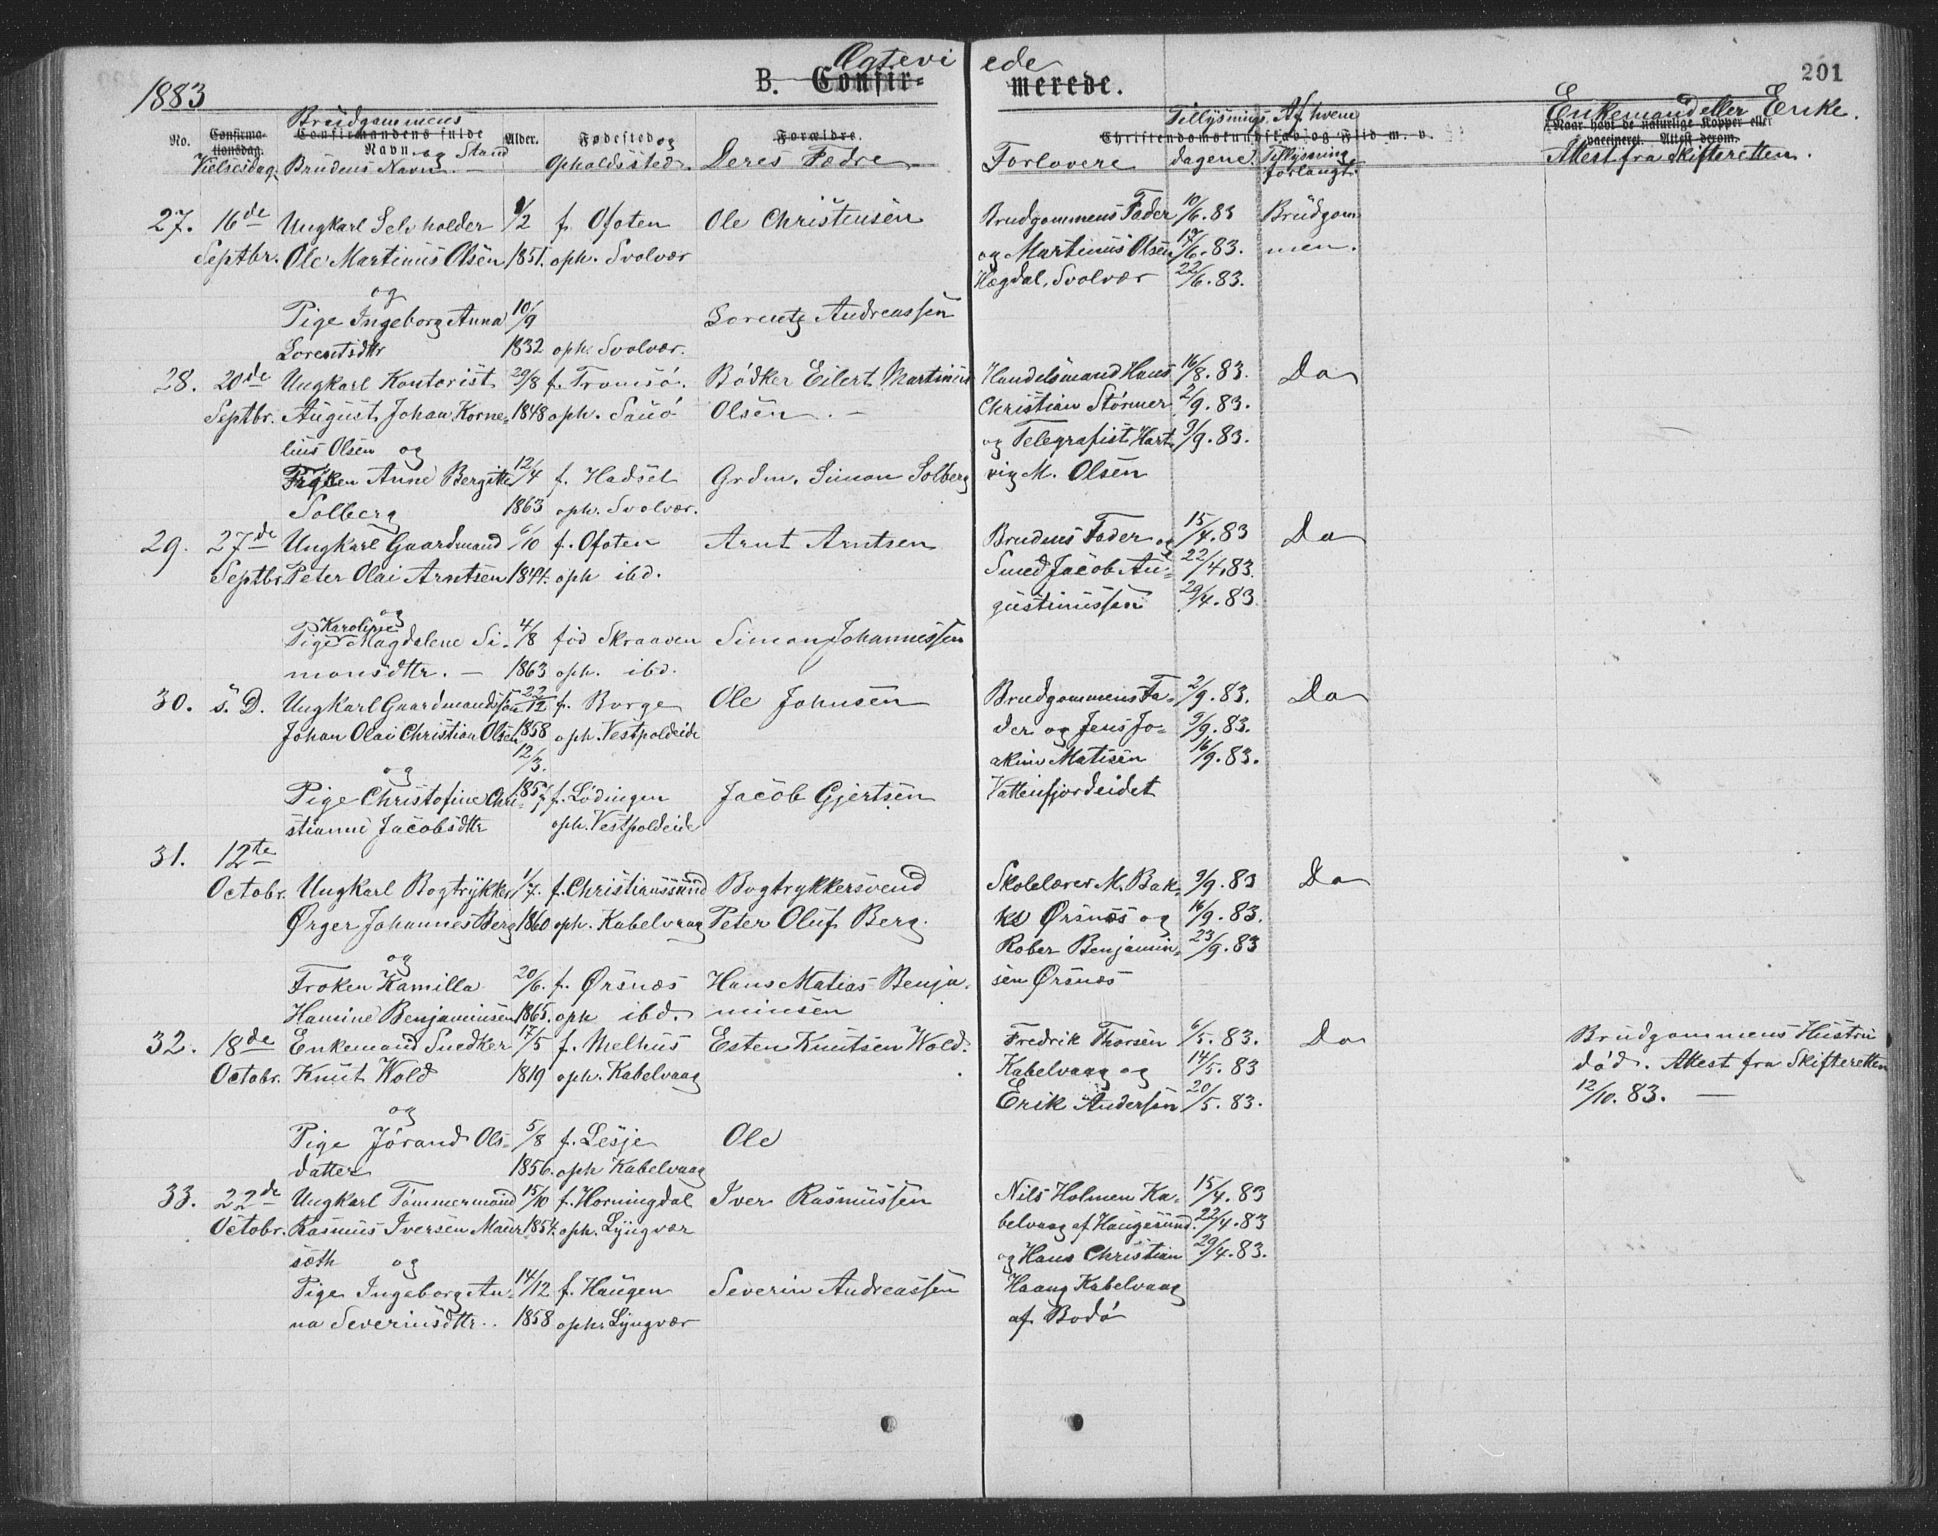 1883
Ægteviede
B. Confirmerede.
201
No. Confirmationsdag. Vielsesdag
Brudgommens Confirmandens fulde Navn og Stand
Brudens Navn. —
Alder.
Fødested og Opholdssted.
Forældre. Deres Fædre
Christendomskundskab og Flid m. v.
Forlovere
Tillysnings dagene.
Af hvem Tillysning forlangt.
Enkemand eller Enke.
Naar havt de naturlige Kopper eller vaccineret. Attest derom.
Attest fra Skifteretten.
27. 16de Ungkarl Selvholder 1/2 f. Ofoten Ole Christensen Brudgommens Fader 10/6. 83 Brudgom
Septbr. Ole Martinus Olsen 1851. oph. Svolvær og Martinus Olsen 17/6. 83. men.
Hægdal, Svolvær 22/6. 83.
og
Pige Ingeborg Anna 10/9 Lorentz Andreassen
Lorentsdtr 1832 oph. Svolvær.
28. 20de Ungkarl Kontorist 29/8 f. Tromsö. Bödker Eilert Martinus Handelsmand Hans 16/8. 83. Do
Septbr. August Johan Korne= 1848 oph. Sauö Olsen. — Christian Störmer 2/9. 83.
lius Olsen og og Telegrafist Hart 9/9. 83.
Fröken Anne Bergitte 12/4 f. Hadsel Grdm. Simon Solberg vig M. Olsen
Solberg 1863 oph. Svolvær.
29. 27de Ungkarl Gaardmand 6/10 f. Ofoten Arnt Arntsen Brudens Fader og 15/4. 83 Do
Septbr Peter Olai Arntsen 1844. oph ibd. Smed Jacob Au= 22/4. 83.
gustinussen 29/4. 83.
og
Karoline
Pige Magdalene Si. 4/8 fød Skraaven Simon Johannessen
monsdtr. — 1863 oph. ibd.
30. s. D. Ungkarl Gaardmandssøn 22/12 f. Borge Ole Johnsen Brudgommens Fa= 2/9. 83. Do
Johan Olai Christian Olsen 1858 oph. Vestpoldeide der og Jens Jo= 9/9. 83.
12/3. akim Matisen 16/9. 83.
og
Pige Christofine Chri= 1857 f. Lödingen Jacob Gjertsen Vatterfjordeidet
stianne Jacobsdtr oph. Vestpoldeide
31. 12te
Octobr. Ungkarl Bogtrykker 1/7. f. Christianssund Bogtrykkersvend Skolelærer M. Bak= 9/9. 83 Do
Ørger Johannes Berg 1860 oph. Kabelvaag Peter Oluf Berg. ke Ørsnes og 16/9. 83.
Rober Benjamin= 23/9. 83
og
Froken Kamilla 20/6. f. Ørsnæs Hans Matias Benja. sen Ørsnæs
Hamine Benjaminsen 1865. oph ibd. minsen
32. 18de Enkemand Snedker 17/5 f. Melhus Esten Knutsen Wold. Fredrik Thorsen 6/5. 83. Do Brudgommens Hustru
Octobr. Knut Wold 1819 oph. Kabelvaag Kabelvaag og 14/5. 83 död. Attest fra Skifteretten
Erik Andersen 20/5. 83. 12/10. 83. —
og
Pige Jörand Ols= 5/8 f. Lesje Ole
datter 1856. oph Kabelvaag
33. 22de Ungkarl Tömmermand 15/10 f. Horningdal Iver Rasmussen Nils Holmen Ka= 15/4. 83
Octobr. Rasmus Iversen Maur 1854. oph. Lyngvær belvaag af Haugesund. 22/4. 83
sæth og og Hans Christian 29/4. 83.
Pige Ingeborg An= 14/12 f. Haugen Severin Andreassen Haang Kabelvaag
na Severinsdtr. 1858 oph. Lyngvær af Bodö